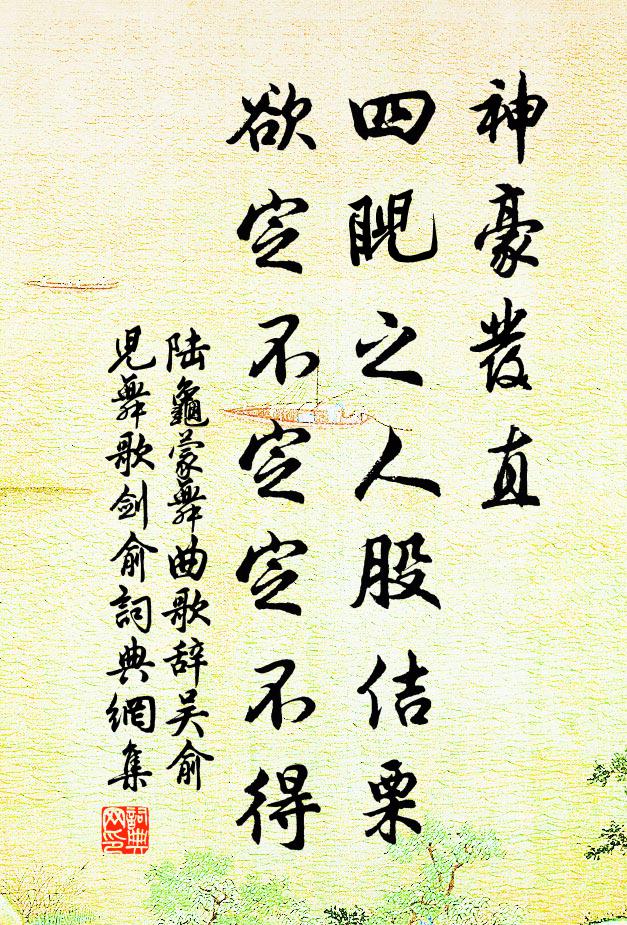 神豪發直
四睨之人股佶栗
欲定不定定不得
陆龜蒙舞曲歌辞吴俞
児舞歌剑俞詞典網集
詞典网印